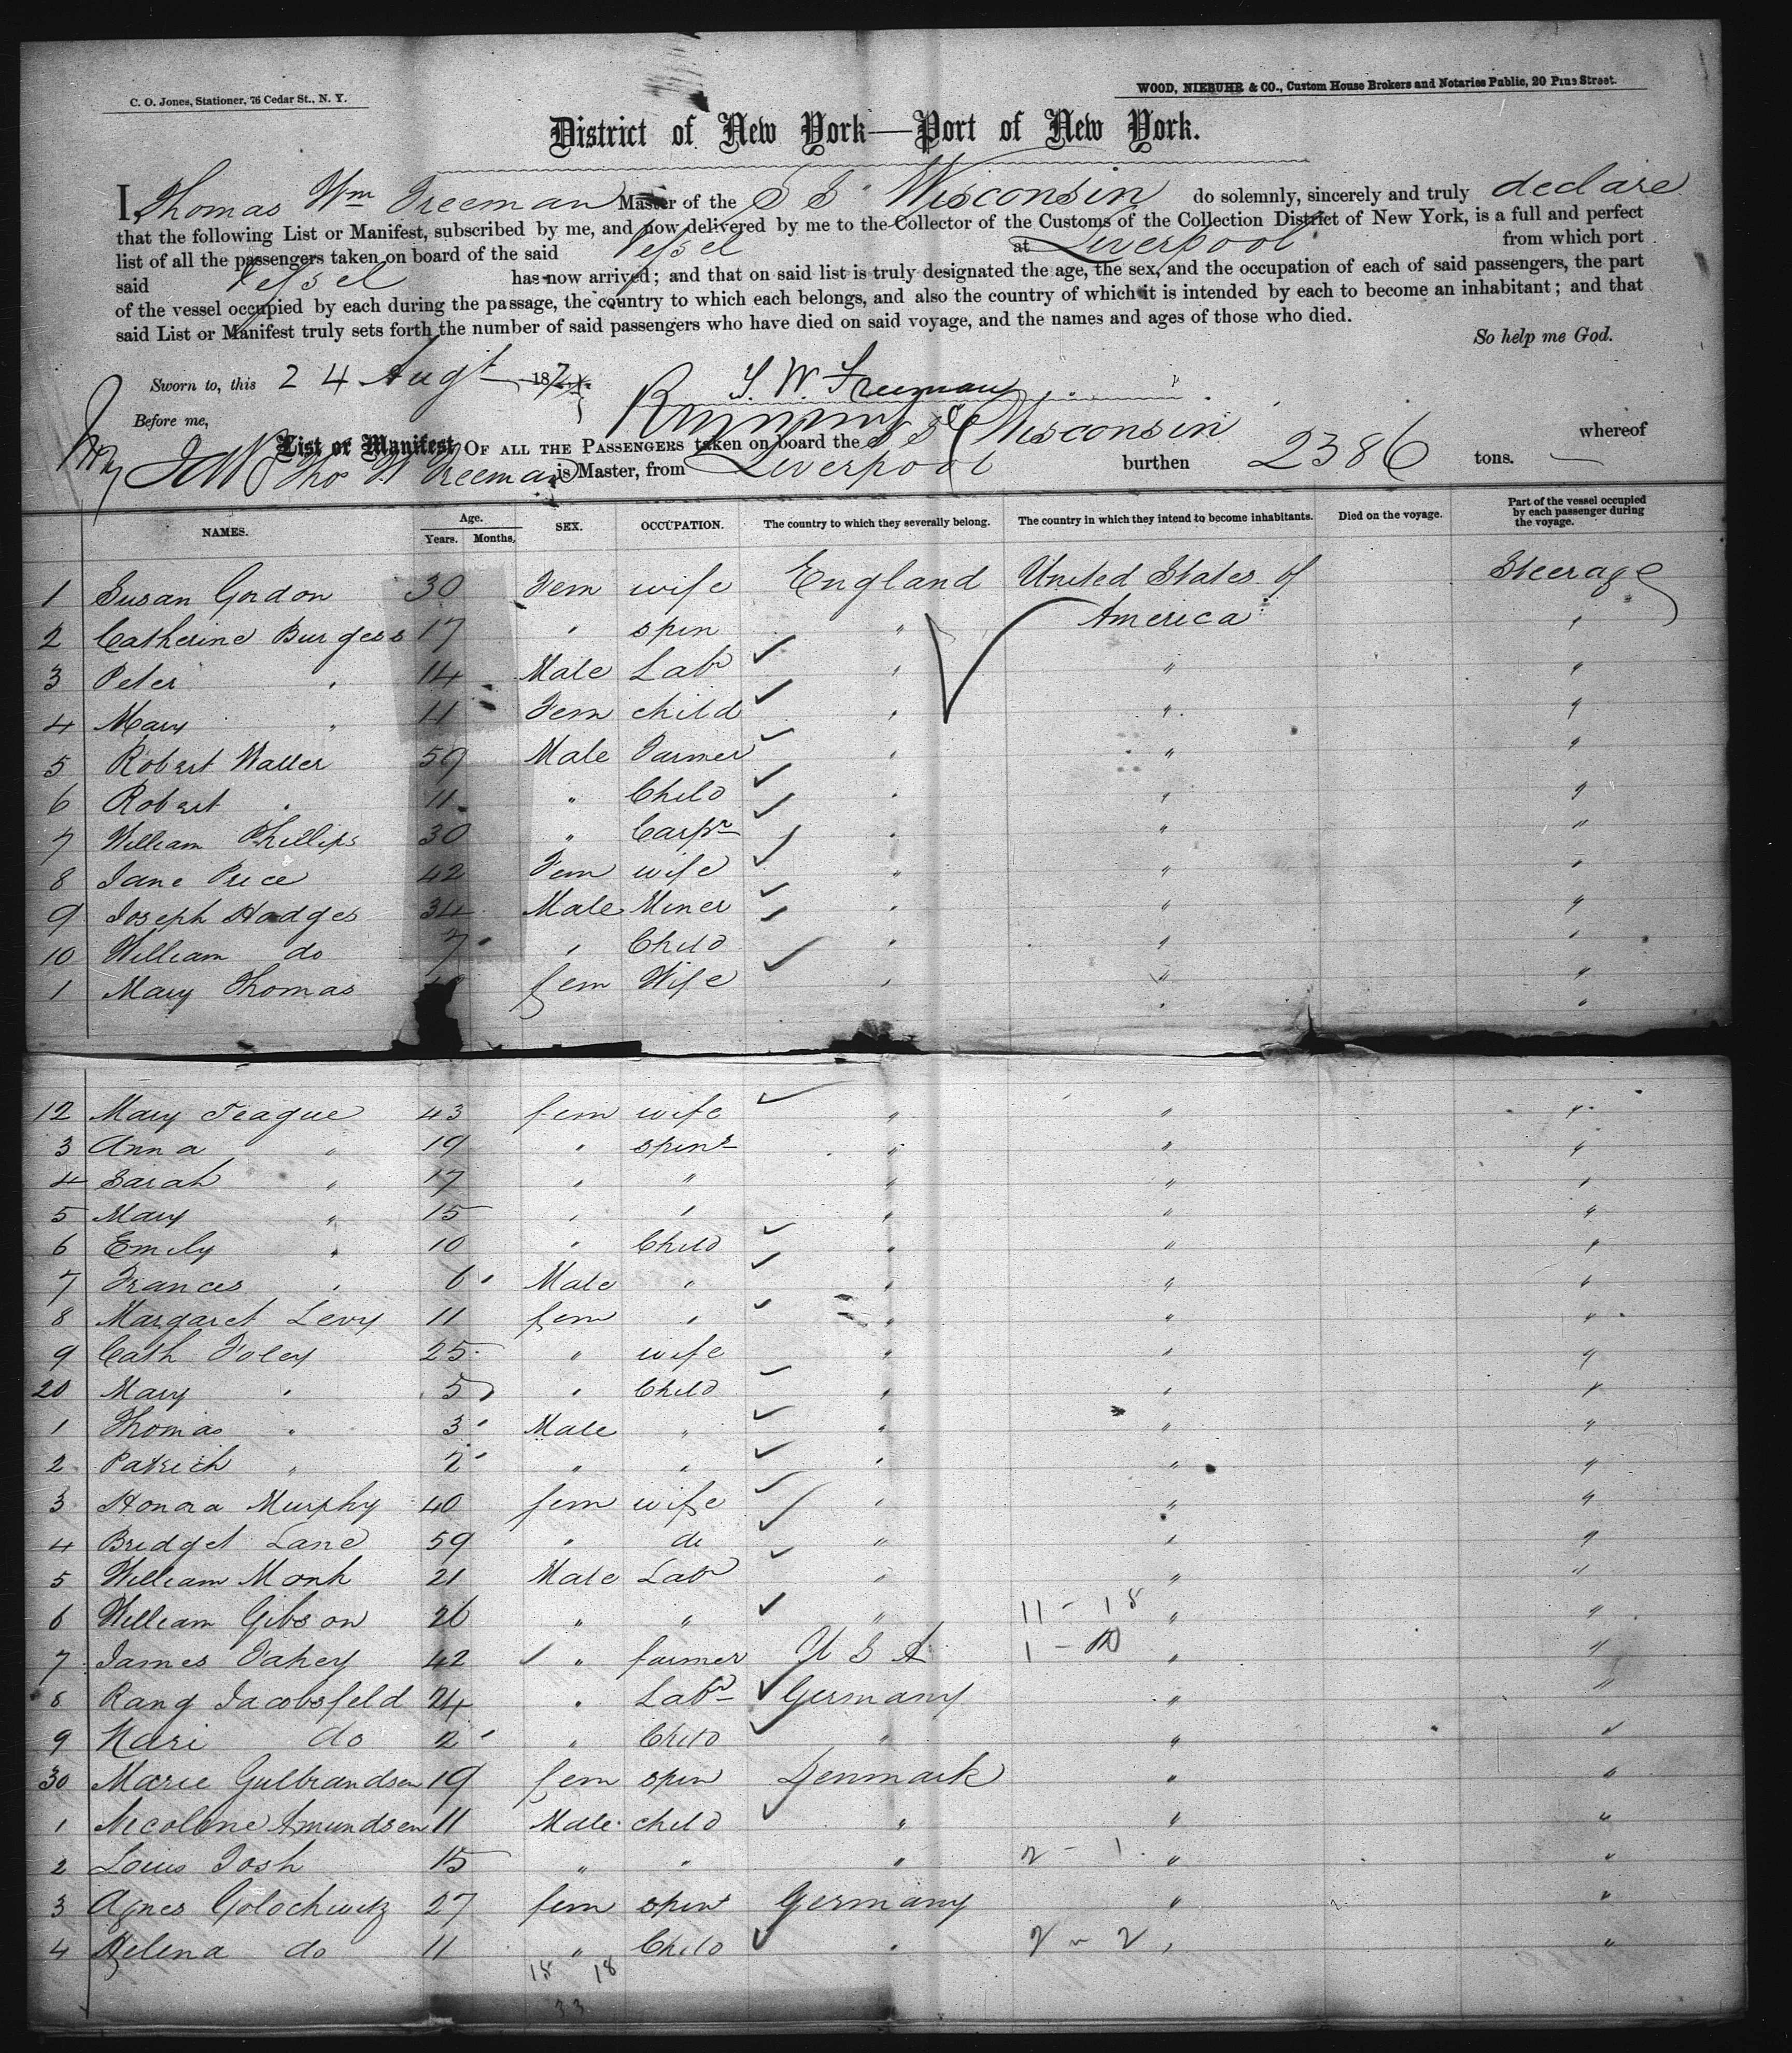 C. O. Jones, Stationer, 76 Cedar St., N. Y.
WOOD, NIEBUHR & CO., Custom House Brokers and Notaries Public, 20 Pine Street.
District of New York—Port of New York.
I, Thomas Wm Freeman Master of the S S Wisconsin do solemnly, sincerely and truly declare
that the following List or Manifest, subscribed by me, and now delivered by me to the Collector of the Customs of the Collection District of New York, is a full and perfect
list of all the passengers taken on board of the said Vessel at Liverpool from which port
said Vessel has now arrived; and that on said list is truly designated the age, the sex, and the occupation of each of said passengers, the part
of the vessel occupied by each during the passage, the country to which each belongs, and also the country of which it is intended by each to become an inhabitant; and that
said List or Manifest truly sets forth the number of said passengers who have died on said voyage, and the names and ages of those who died.
So help me God.
Sworn to, this 24 Augt 187 T. W. Freeman
Before me,
List or Manifest OF ALL THE PASSENGERS taken on board the S S Wisconsin whereof
Thos W Freeman is Master, from Liverpool burthen 2386 tons.
NAMES. Age. Years. Months. SEX. OCCUPATION. The country to which they severally belong. The country in which they intend to become inhabitants. Died on the voyage. Part of the vessel occupied by each passenger during the voyage.
1 Susan Gordon 30 Fem wife England United States of Steerage
2 Catherine Burgess 17 " spin " America "
3 Peter " 14 Male Labr " " "
4 Mary " 11 Fem child " " "
5 Robert Waller 59 Male Farmer " " "
6 Robert " 11 " Child " " "
7 William Phillips 30 " Carpr " " "
8 Jane Price 42 Fem wife " " "
9 Joseph Hodges 34 Male Miner " " "
10 William do 7 " Child " " "
1 Mary Thomas fem Wife " " "
12 Mary Teague 43 fem wife " " "
3 Anna " 19 " spinr " " "
4 Sarah " 17 " " " " "
5 Mary " 15 " " " " "
6 Emily " 10 " Child " " "
7 Frances " 6 Male " " " "
8 Margaret Levy 11 fem " " " "
9 Cath Foley 25 " wife " " "
20 Mary " 5 " Child " " "
1 Thomas " 3 Male " " " "
2 Patrick " 2 " " " " "
3 Honora Murphy 40 fem wife " " "
4 Bridget Lane 59 " do " " "
5 William Monk 21 Male Labr " " "
6 William Gibson 26 " " " 11 - 18 " "
7 James Fahey 42 " farmer U S A 1 - " "
8 Rang Jacobsfeld 24 " Labr Germany " "
9 Kari do 2 " Child " " "
30 Marie Gulbrandsen 19 fem spin Denmark " "
1 Nicoline Amundsen 11 Male child " " "
2 Louis Josh 15 " " " 2 - 1 " "
3 Agnes Golochwitz 27 fem spinr Germany " "
4 Helena do 11 " Child " 2 - 2 " "
18 18
33